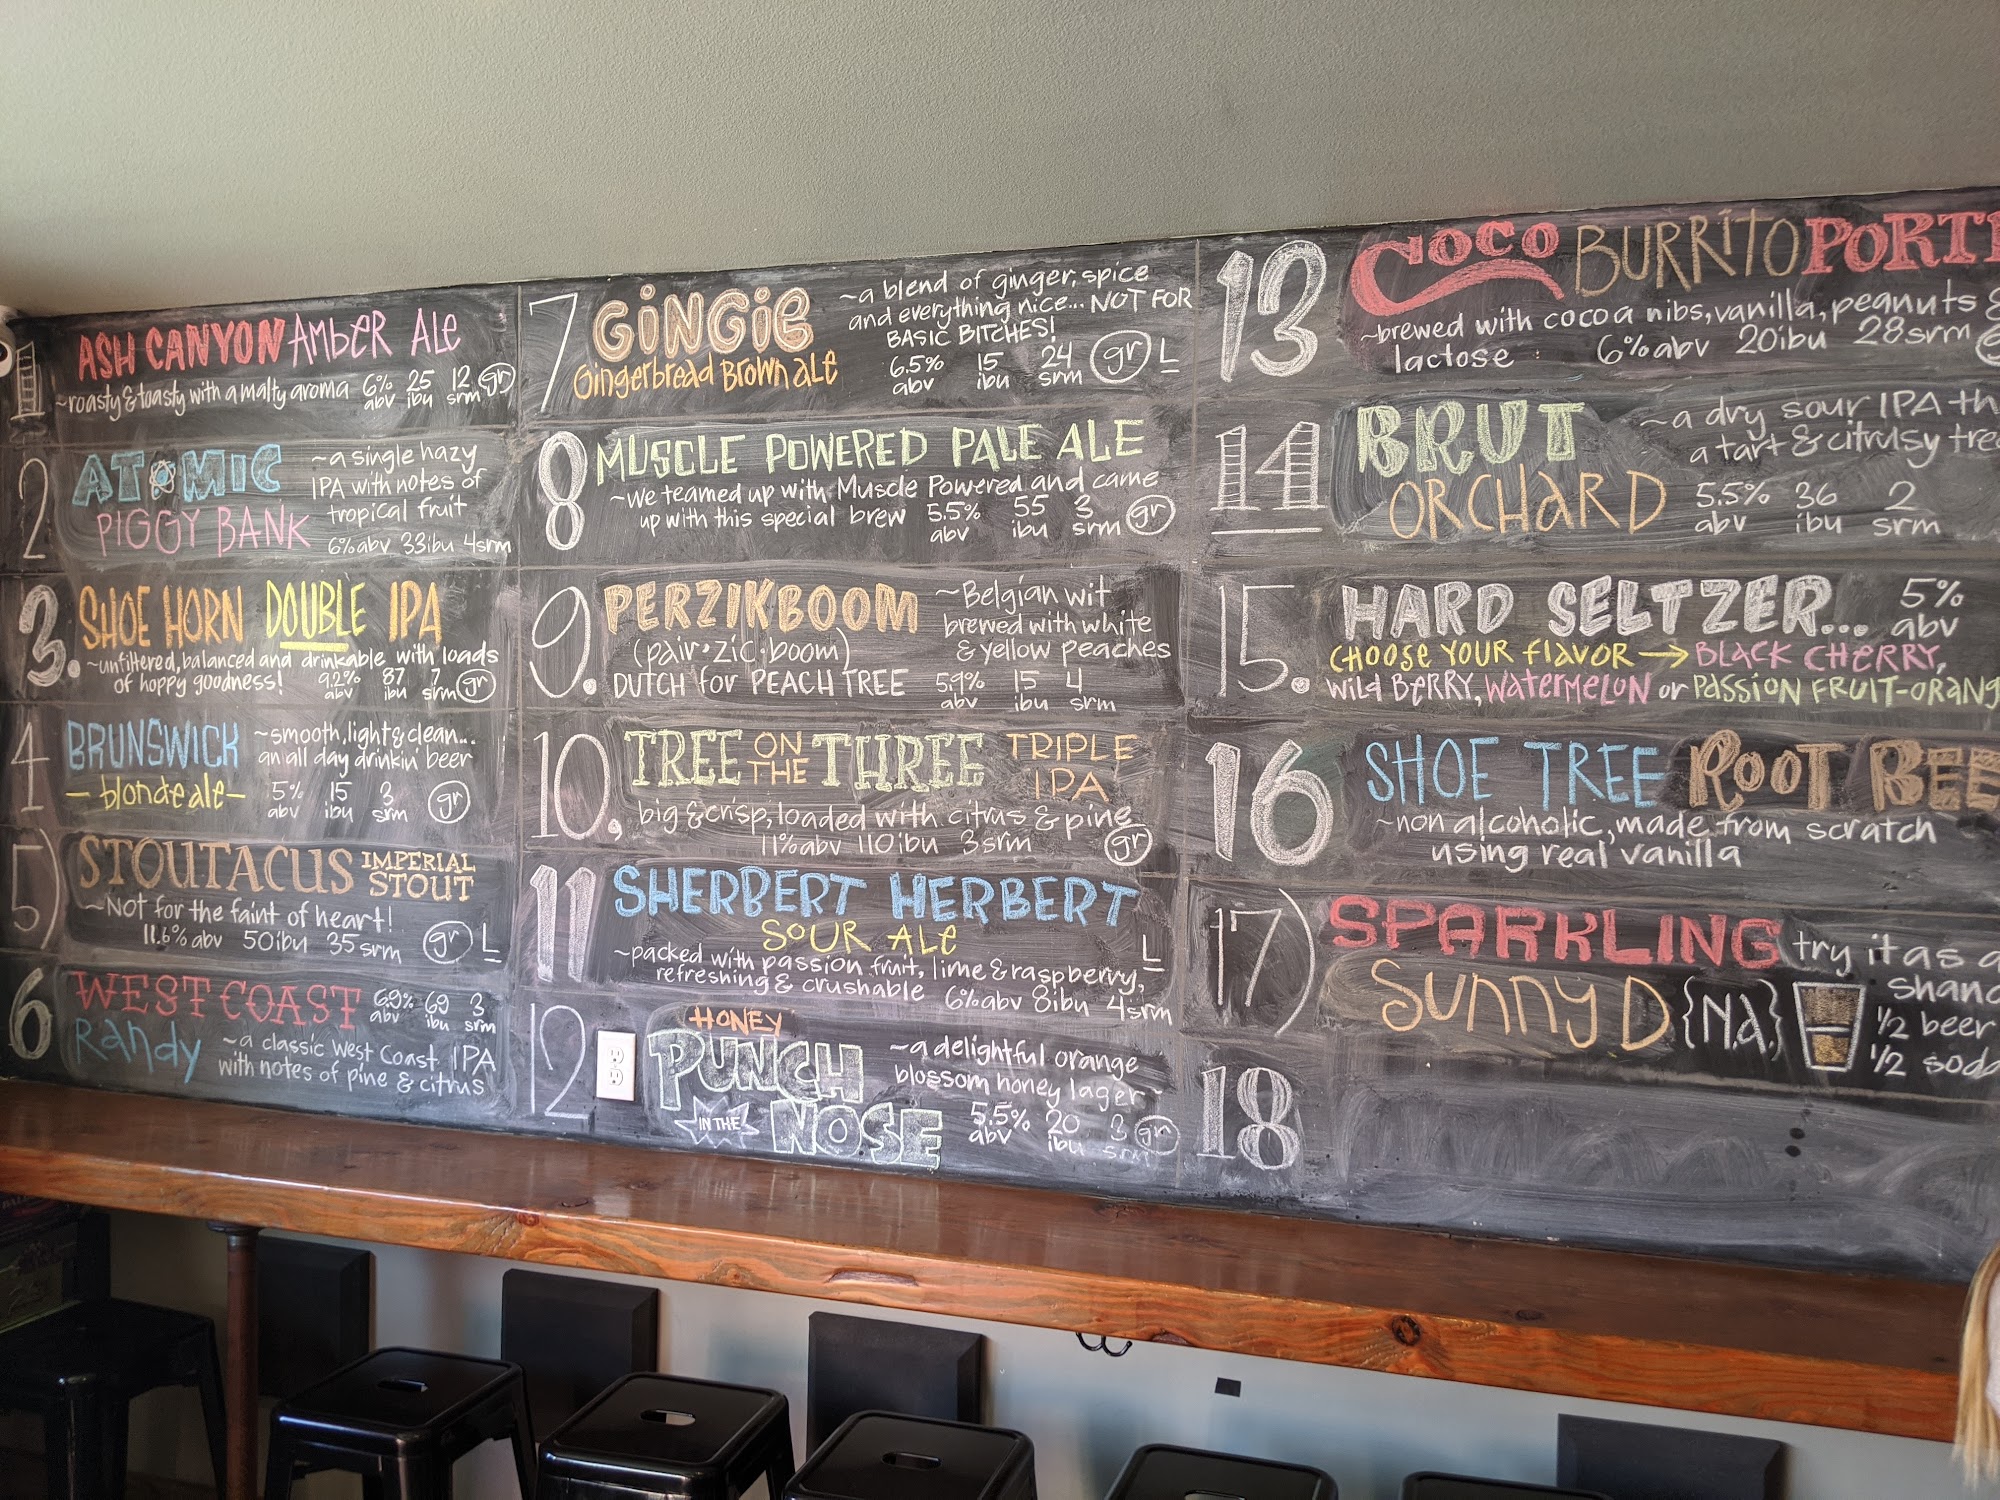 1
ASH CANYON AMBER ALE
~roasty & toasty with a malty aroma 6% abv 25 ibu 12 srm gr
2
ATOMIC
PIGGY BANK
~a single hazy
IPA with notes of
tropical fruit
6% abv 33ibu 4srm
3.
SHOE HORN DOUBLE IPA
~unfiltered, balanced and drinkable with loads
of hoppy goodness! 9.2% abv 87 ibu 7 srm gr
4
BRUNSWICK
- blonde ale -
~smooth, light & clean...
an all day drinkin' beer
5% abv 15 ibu 3 srm gr
5)
STOUTACUS IMPERIAL STOUT
~Not for the faint of heart!
11.6% abv 50ibu 35srm gr L
6
WEST COAST 6.9% abv 69 ibu 3 srm
Randy
~a classic West Coast IPA
with notes of pine & citrus
7
GiNGiE
Gingerbread Brown ale
~a blend of ginger, spice
and everything nice... NOT FOR
BASIC BITCHES!
6.5% abv 15 ibu 24 srm gr L
8
MUSCLE POWERED PALE ALE
~We teamed up with Muscle Powered and came
up with this special brew 5.5% abv 55 ibu 3 srm gr
9.
PERZIKBOOM
(pair·zic·boom)
DUTCH for PEACH TREE
~Belgian wit
brewed with white
& yellow peaches
5.9% abv 15 ibu 4 srm
10,
TREE ON THE THREE TRIPLE IPA
big & crisp, loaded with citrus & pine
11% abv 110ibu 3srm gr
11
SHERBERT HERBERT
SOUR ALE
~packed with passion fruit, lime & raspberry, L
refreshing & crushable 6% abv 8ibu 4srm
12
HONEY
PUNCH
IN THE NOSE
~a delightful orange
blossom honey lager~
5.5% abv 20 ibu 3 srm gr
13
COCO BURRITO PORT
~brewed with cocoa nibs, vanilla, peanuts &
lactose 6% abv 20ibu 28srm
14
BRUT
ORCHARD
~a dry sour IPA th
a tart & citrusy tre
5.5% abv 36 ibu 2 srm
15.
HARD SELTZER... 5% abv
CHOOSE YOUR FLAVOR → BLACK CHERRY,
Wild BERRY, WATERMELON or PASSION FRUIT-ORANG
16
SHOE TREE ROOT BEE
~non alcoholic, made from scratch
using real vanilla
17)
SPARKLING
SUNNY D {N.a.}
try it as a
shand
1/2 beer
1/2 soda
18